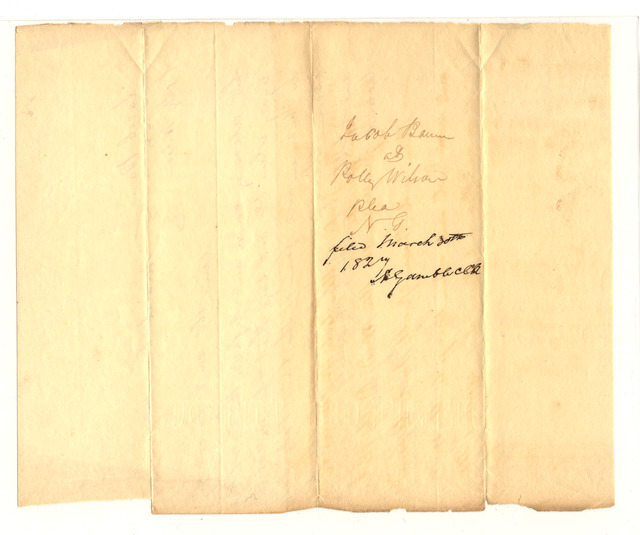 Jacob Baum
ads
Polly Wilson
plea
N. G.
filed March 30th
1827
Gamble Clk